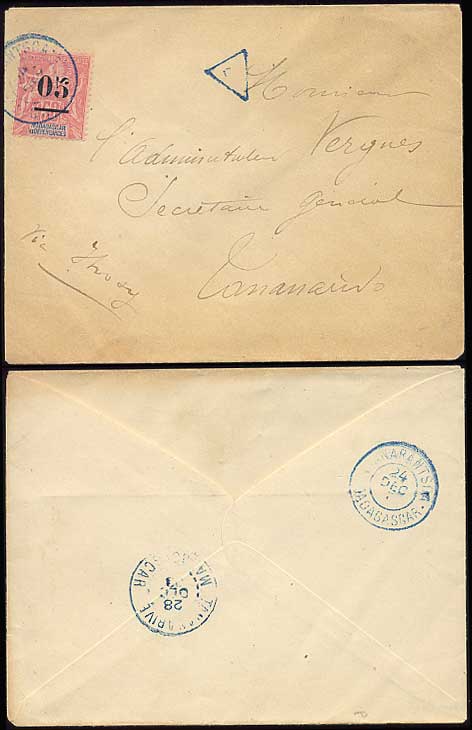 05
MADAGASCAR
ET DÉPENDANCES
Monsieur
l'administrateur Vergnes
Secrétaire général
Tananarive
Via Ihosy
24
DEC
MADAGASCAR
TANANARIVE
28